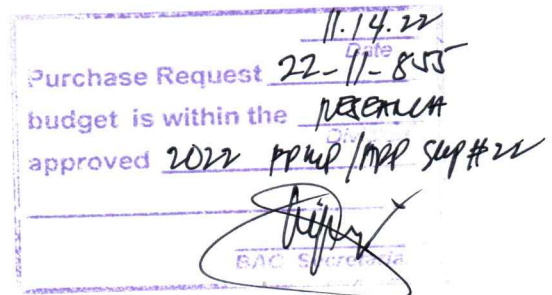 11.14.22
Date
Purchase Request 22-11-855
budget is within the RESEARCH
Division
approved 2022 PPMP/APP SUP#22
BAC Secretaria